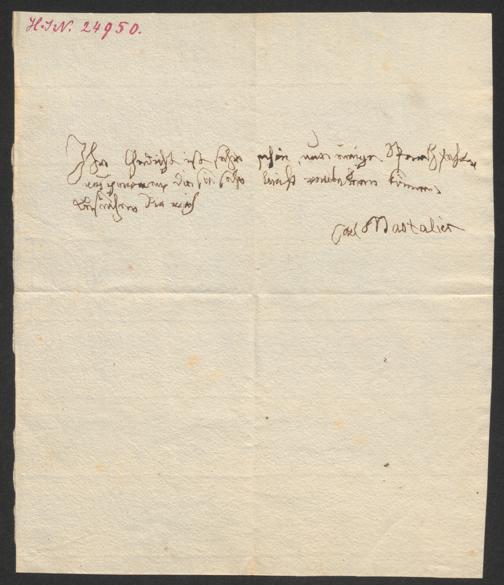 H.I.N. 24950.
Ihr Gedicht ist sehr schön, nur einige Sprachfehler
ausgenommen die sie sehr leicht verbessern können.
Besuchen Sie mich
Carl Mastalier